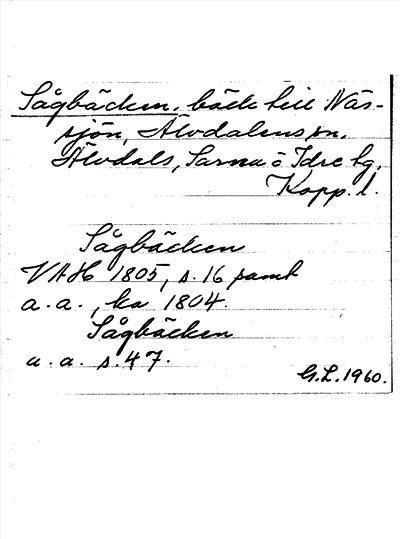 Sågbäcken, bäck till Näs-
sjön, Älvdalens sn.
Älvdals, Särna o Idre tg.
Kopp. l.
Sågbäcken
VAH 1805, s. 16 samt
a. a., ka 1804.
Sågbäcken
a. a. s. 47.
G.L. 1960.